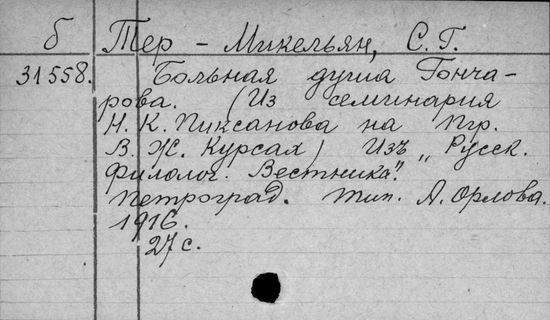 б Тер - Микельян, С. Г.
31558. Больная душа Гонча-
рова. (Из семинария
Н. К. Пиксанова на Пгр.
В. Ж. Курсах) Изъ „Русск.
Филолог. Вестника".
Петроград. тип. А. Орлова.
1916.
27 с.